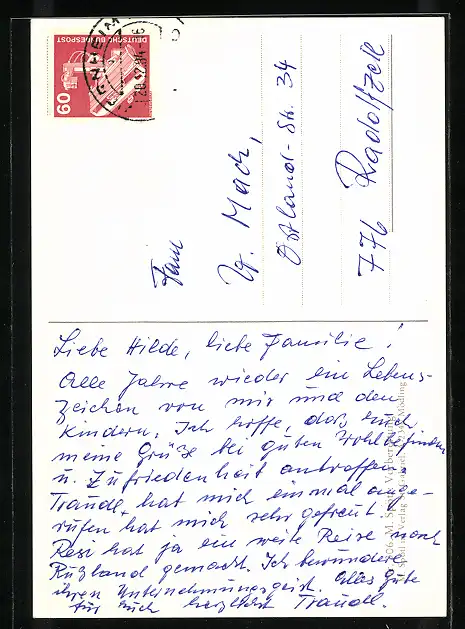 DEUTSCHE BUNDESPOST
60
Fam
W. Mach,
Ostland-Str. 34
776 Radolfzell
Liebe Hilde, liebe Familie!
Alle Jahre wieder ein Lebens-
zeichen von mir und den
Kindern. Ich hoffe, dass Euch
meine Grüße bei guten Wohlbefinden
u. Zufriedenheit antreffen.
Traudl, hat mich einmal ange-
rufen hat mich sehr gefreut.
Resi hat ja ein weite Reise nach
Rußland gemacht. Ich bewundere
ihren Unternehmungsgeist. Alles Gute
für Euch herzlichst Traudl.